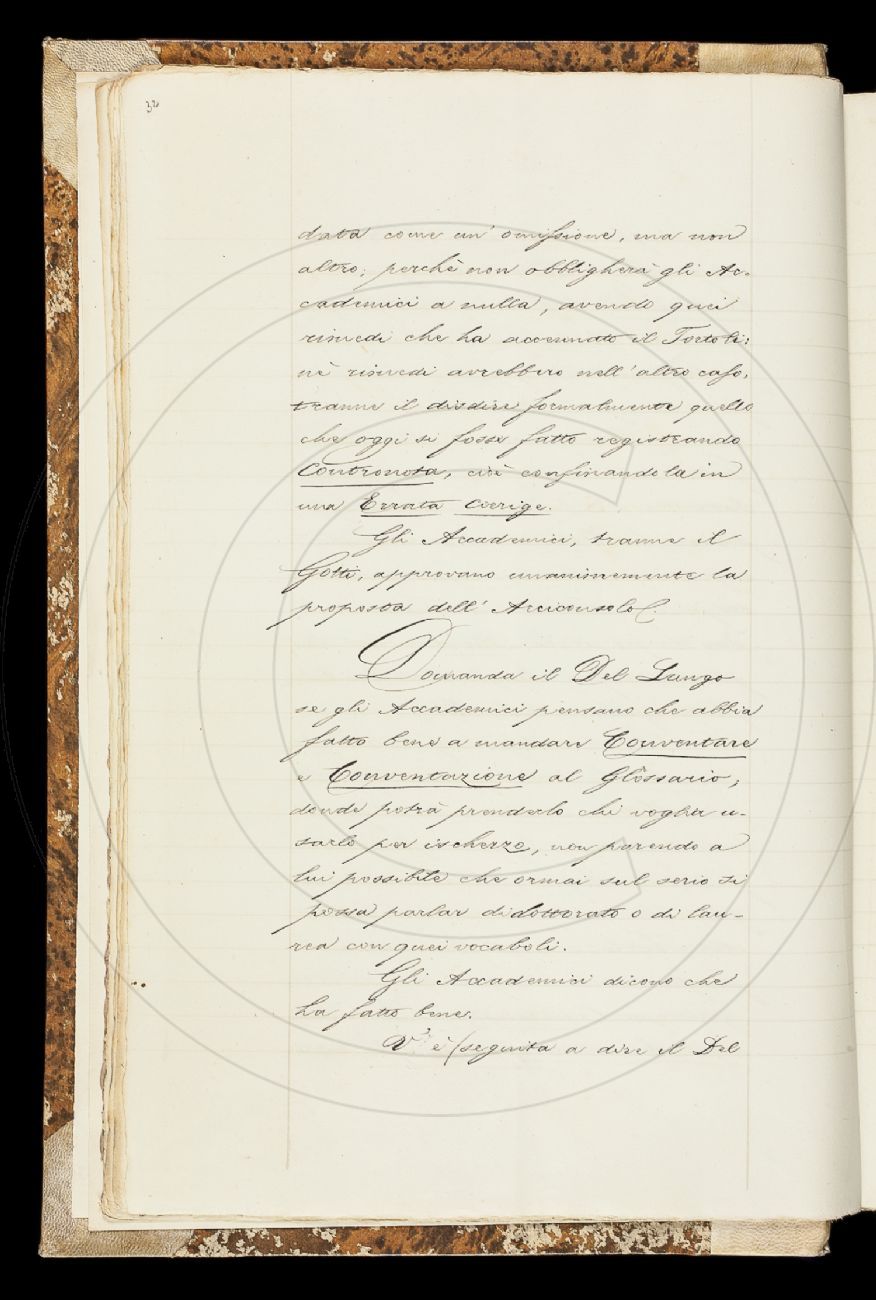 32
data come un' omissione, ma non
altro; perchè non obbligherà gli Ac-
cademici a nulla, avendo quei
rimedi che ha accennato il Tortoli:
nè rimedi avrebbero nell'altro caso,
tranne il disdire formalmente quello
che oggi si fosse fatto registrando
Contronota, cioè confinandola in
una Errata Corrige.
Gli Accademici, tranne il
Gotti, approvano unanimemente la
proposta dell' Arciconsolo.
Domanda il Del Lungo
se gli Accademici pensano che abbia
fatto bene a mandare Conventare
e Conventazione al Glossario,
donde potrà prenderlo chi voglia u-
sarlo per ischerzo, non parendo a
lui possibile che ormai sul serio si
possa parlar di dottorato o di lau-
rea con quei vocaboli.
Gli Accademici dicono che
ha fatto bene.
V' è (seguita a dire il Del